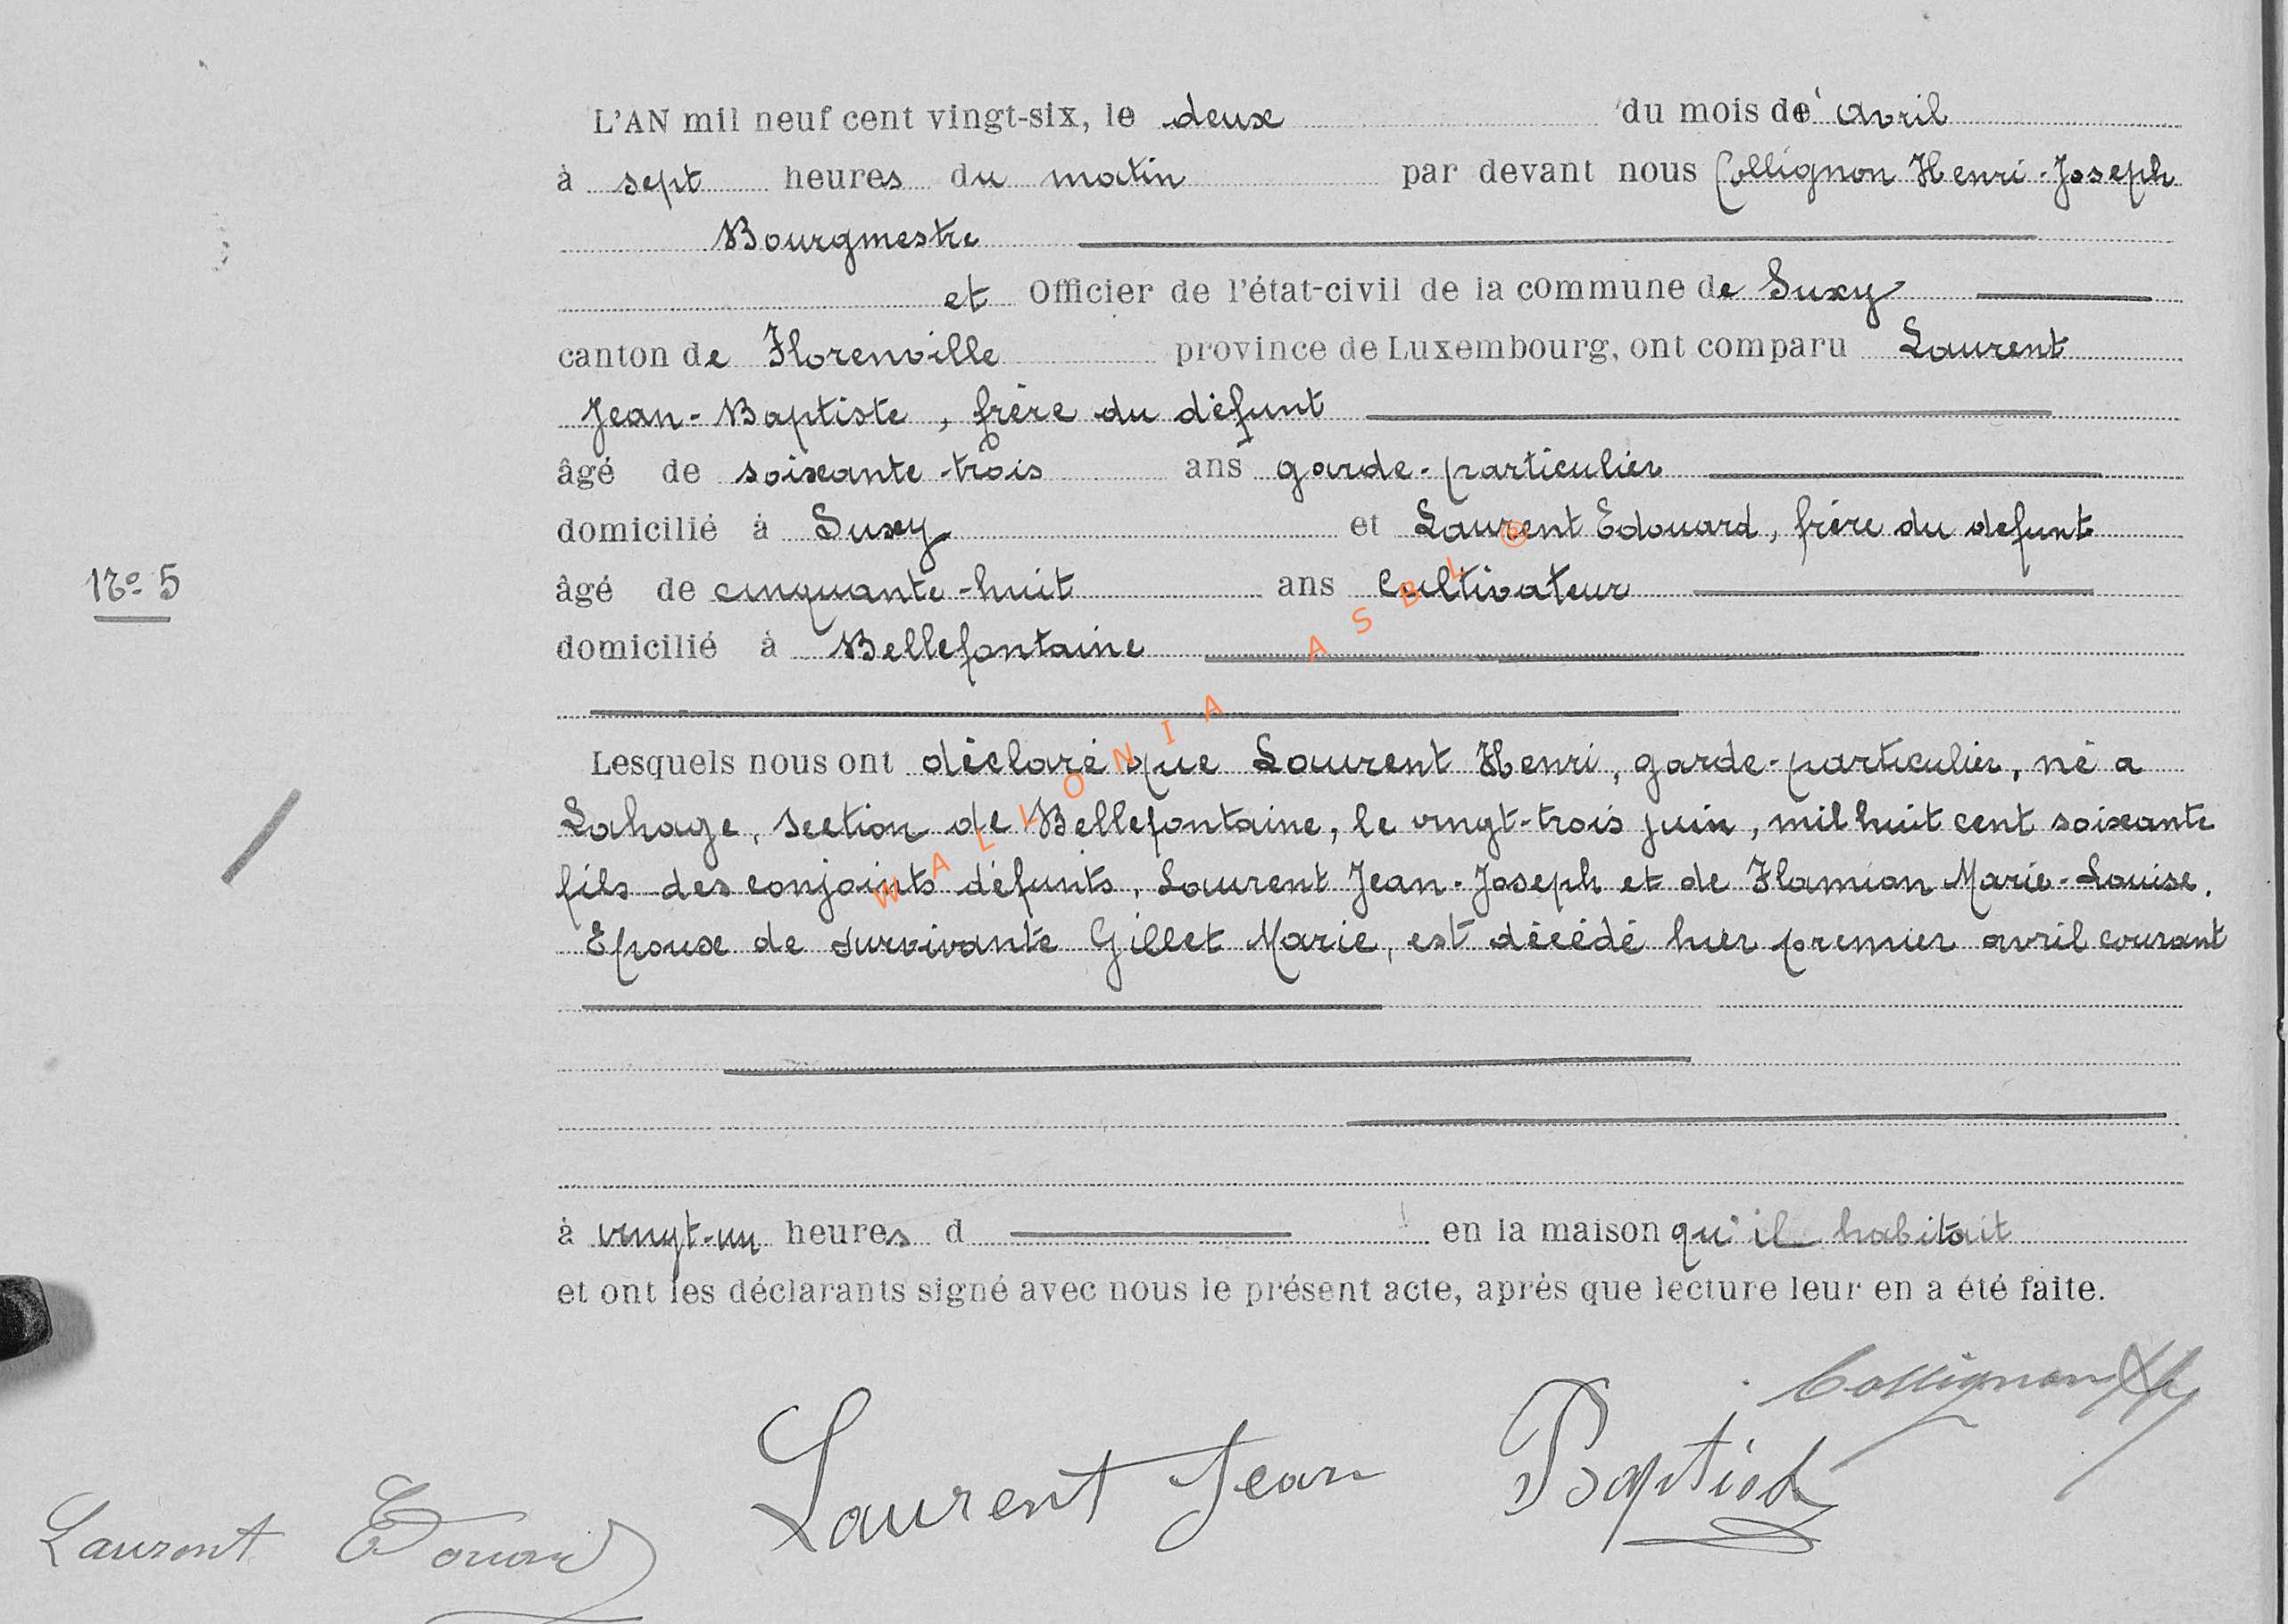 L'AN mil neuf cent vingt-six, le deux du mois de avril
à sept heures du matin par devant nous Collignon Henri-Joseph
Bourgmestre
et Officier de l'état-civil de la commune de Suxy
canton de Florenville province de Luxembourg, ont comparu Laurent
Jean-Baptiste, frère du défunt
âgé de soixante-trois ans garde-particulier
domicilié à Suxy et Laurent Edouard, frère du defunt
N° 5
âgé de cinquante-huit ans cultivateur
domicilié à Bellefontaine
Lesquels nous ont déclaré que Laurent Henri, garde-particulier, né a
Lahage, section de Bellefontaine, le vingt-trois juin, mil huit cent soixante
fils des conjoints défunts, Laurent Jean-Joseph et de Flamion Marie-Louise.
Epoux de survivante Gillet Marie, est décédé hier premier avril courant
à vingt-un heures d en la maison qu'il habitait
et ont les déclarants signé avec nous le présent acte, après que lecture leur en a été faite.
Collignon HJ
Laurent Jean Baptiste
Laurent Edouard
WALLONIA ASBL ®